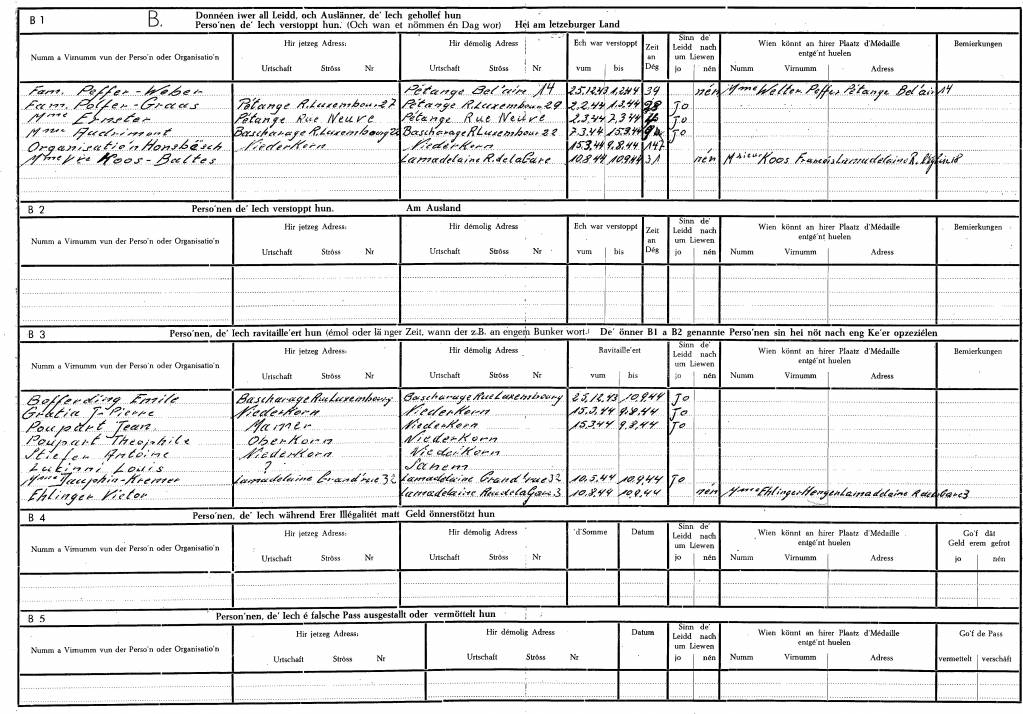 B 1 B. Donnéen iwer all Leidd, och Auslänner, de' Iech gehollef hun
Perso'nen de' Iech verstoppt hun. (Och wan et nömmen én Dag wor) Hei am letzeburger Land
Numm a Virnumm vun der Perso'n oder Organisatio'n Hir jetzeg Adress: Urtschaft Ströss Nr Hir démolig Adress Urtschaft Ströss Nr Ech war verstoppt vum bis Zeit an Dég Sinn de' Leidd nach um Liewen jo nén Wien könnt an hirer Plaatz d'Médaille entgé'nt huelen Numm Virnumm Adress Bemierkungen
Fam. Peffer-Weber Pétange Bel'air 14 25.12.43 1.2.44 39 nén Mme Welter Peffer Pétange Bel'air 14
Fam. Polfer-Graas Pétange R. Luxembour 27 Pétange R. Luxembour 29 2.2.44 1.3.44 28 Jo
Mme Ernster Pétange Rue Neuve Pétange Rue Neuve 2.3.44 7.3.44 Jo
Mme Audrimont Bascharage R Luxembourg 22 Bascharage R Luxembour 22 7.3.44 15.3.44 Jo
Organisatio'n Honsbäsch Niederkorn Niederkorn 15.3.44 9.8.44 147
Mme Vve Koos-Baltes Lamadelaine R. de la Gare 10.8.44 10.9.44 31 nén Mrieur Koos François Lamadelaine R. 18
B 2 Perso'nen de' Iech verstoppt hun. Am Ausland
Numm a Virnumm vun der Perso'n oder Organisatio'n Hir jetzeg Adress: Urtschaft Ströss Nr Hir démolig Adress Urtschaft Ströss Nr Ech war verstoppt vum bis Zeit an Dég Sinn de' Leidd nach um Liewen jo nén Wien könnt an hirer Plaatz d'Médaille entgé'nt huelen Numm Virnumm Adress Bemierkungen
B 3 Perso'nen, de' Iech ravitaille'ert hun (émol oder länger Zeit, wann der z.B. an engem Bunker wort.) De' önner B1 a B2 genannte Perso'nen sin hei nöt nach eng Ke'er opzeziélen
Numm a Virnumm vun der Perso'n oder Organisatio'n Hir jetzeg Adress: Urtschaft Ströss Nr Hir démolig Adress Urtschaft Ströss Nr Ravitaille'ert vum bis Sinn de' Leidd nach um Liewen jo nén Wien könnt an hirer Plaatz d'Médaille entgé'nt huelen Numm Virnumm Adress Bemierkungen
Bofferding Emile Bascharage Rue Luxembourg Bascharage Rue Luxembourg 25.12.43 10.9.44 Jo
Gratia J-Pierre Niederkorn Niederkorn 15.3.44 9.8.44 Jo
Poupart Jean Mamer Niederkorn 15.3.44 9.8.44 Jo
Poupart Theophile Oberkorn Niederkorn
Stiefer Antoine Niederkorn Niederkorn
Lukinni Louis ? Sanem
Mme Jauphin-Kremer Lamadelaine Grand'rue 32 Lamadelaine Grand'rue 32 10.5.44 10.9.44 Jo
Ehlinger Victor Lamadelaine Rue de la Gare 3 10.8.44 10.9.44 nén Mme Ehlinger Hengen Lamadelaine R de la Gare 3
B 4 Perso'nen, de' Iech während Erer Illégalitét matt Geld önnerstötzt hun
Numm a Virnumm vun der Perso'n oder Organisatio'n Hir jetzeg Adress: Urtschaft Ströss Nr Hir démolig Adress Urtschaft Ströss Nr 'd'Somme Datum Sinn de' Leidd nach um Liewen jo nén Wien könnt an hirer Plaatz d'Médaille entgé'nt huelen Numm Virnumm Adress Go'f dät Geld erem gefrot jo nén
B 5 Person'nen, de' Iech é falsche Pass ausgestallt oder vermöttelt hun
Numm a Virnumm vun der Perso'n oder Organisatio'n Hir jetzeg Adress: Urtschaft Ströss Nr Hir démolig Adress: Urtschaft Ströss Nr Datum Sinn de' Leidd nach um Liewen jo nén Wien könnt an hirer Plaatz d'Médaille entgé'nt huelen Numm Virnumm Adress Go'f de Pass vermettelt verschäft